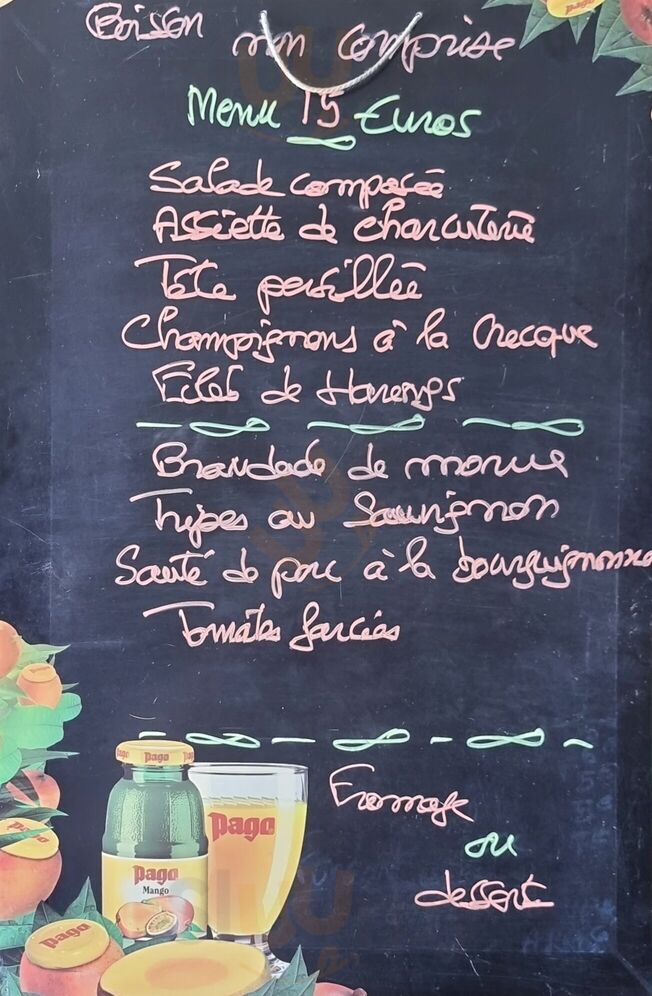 Boisson non comprise
Menu 15 Euros
Salade composée
Assiette de charcuterie
Tête persillée
Champignons à la Grecque
Filet de Harengs
Brandade de morue
Tripes au Sauvignon
Sauté de porc à la bourguignonne
Tomates farcies
Fromage
ou
dessert
Pago
Pago
Pago
Mango
Pago